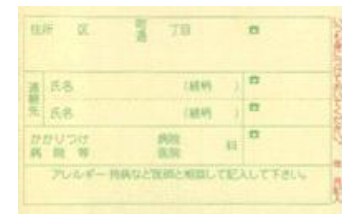 住所 区 町通 丁目 ☎
連絡先 氏名 (続柄 ) ☎
氏名 (続柄 ) ☎
かかりつけ病院等 病院医院 科 ☎
アレルギー・持病など医師と相談して記入して下さい。